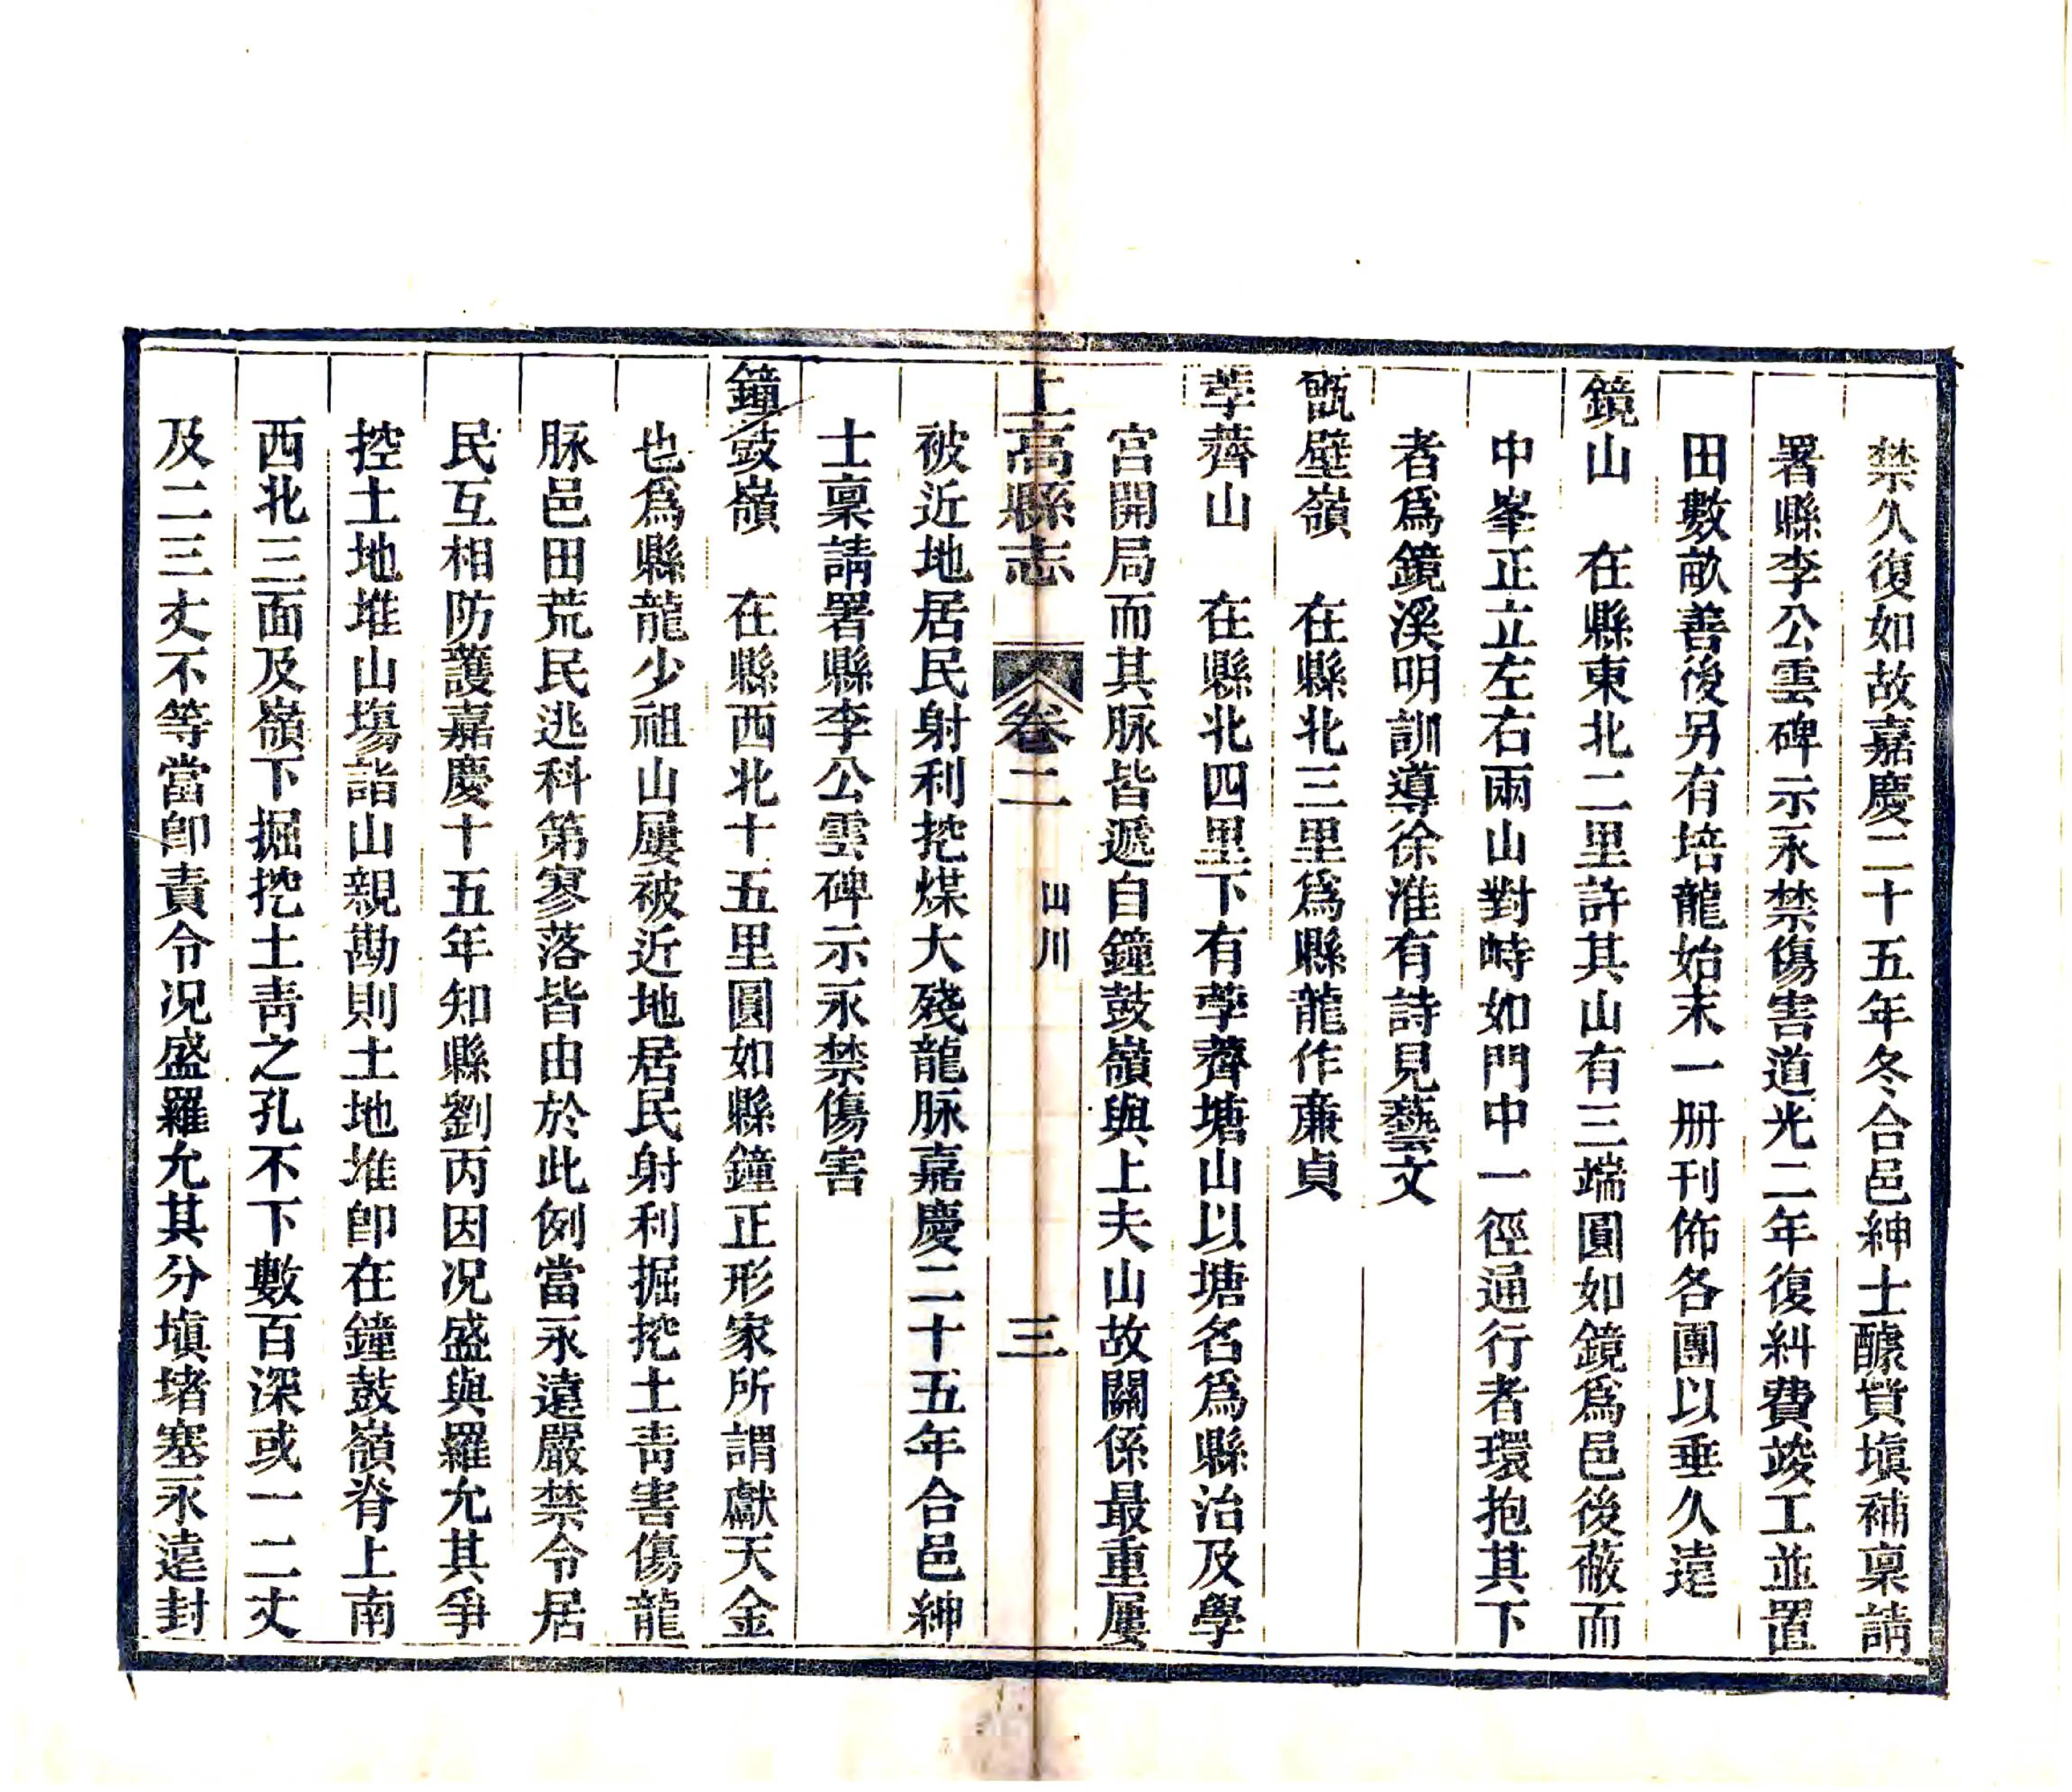 禁久復如故嘉慶二十五年冬合邑紳士醵貲塡補稟請
署縣李公雲碑示永禁傷害道光二年復糾費竣工並置
田數畝善後另有培龍始末一册刊佈各團以垂久遠
鏡山　在縣東北二里許其山有三端圓如鏡爲邑後蔽而
中峯正立左右兩山對峙如門中一徑通行者環抱其下
者爲鏡溪明訓導徐淮有詩見藝文
甑壁嶺　在縣北三里爲縣龍作廉貞
荸薺山　在縣北四里下有荸薺塘山以塘名爲縣治及學
宫開局而其脉皆遞自鐘鼓嶺與上夫山故關係最重屢
上高縣志　卷二　山川　三
被近地居民射利挖煤大殘龍脉嘉慶二十五年合邑紳
士稟請署縣李公雲碑示永禁傷害
鐘鼓嶺　在縣西北十五里圓如縣鐘正形家所謂獻天金
也爲縣龍少祖山屢被近地居民射利掘挖土靑害傷龍
脉邑田荒民逃科第寥落皆由於此例當永遠嚴禁令居
民互相防護嘉慶十五年知縣劉丙因况盛與羅允其爭
控土地堆山塲詣山親勘則土地堆卽在鐘鼓嶺脊上南
西北三面及嶺下掘挖土靑之孔不下數百深或一二丈
及二三丈不等當卽責令况盛羅允其分塡堵塞永遠封